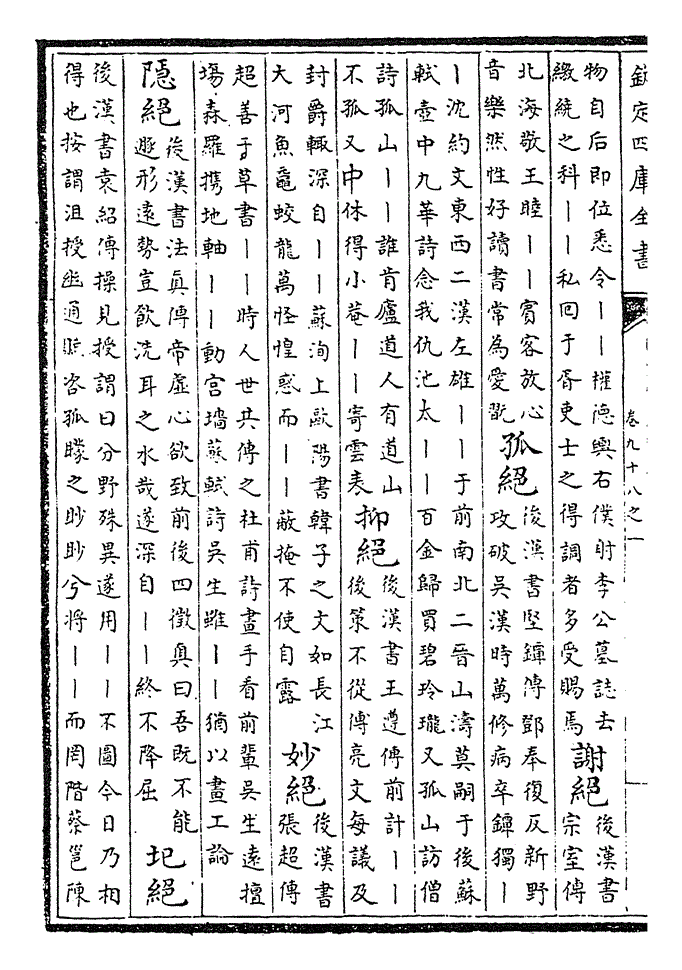 欽定四庫全書
卷九十八之一
物自后即位悉令丨丨權德輿右僕射李公墓誌去
綴統之科丨丨私回于胥吏士之得調者多受賜焉
謝絕
後漢書
宗室傳
北海敬王睦丨丨賓客放心
音樂然性好讀書常為愛翫
孤絕
後漢書堅鐔傳鄧奉復反新野
攻破吳漢時萬修病卒鐔獨丨
丨沈約文東西二漢左雄丨丨于前南北二晉山濤莫嗣于後蘇
軾壺中九華詩念我仇池太丨丨百金歸買碧玲瓏又孤山訪僧
詩孤山丨丨誰肯廬道人有道山
不孤又中休得小菴丨丨寄雲表
抑絕
後漢書王遵傳前計丨丨
後策不從傅亮文每議及
封爵輒深自丨丨蘇洵上歐陽書韓子之文如長江
大河魚黿蛟龍萬怪惶惑而丨丨蔽掩不使自露
妙絕
後漢書
張超傳
超善于草書丨丨時人世共傳之杜甫詩畫手看前輩吳生遠擅
場森羅攜地軸丨丨動宮墻蘇軾詩吳生雖丨丨猶以畫工論
隱絕
後漢書法真傳帝虛心欲致前後四徵真曰吾既不能
遯形遠勢豈飲洗耳之水哉遂深自丨丨終不降屈
圮絕
後漢書袁紹傳操見授謂曰分野殊異遂用丨丨不圖今日乃相
得也按謂沮授幽通賦咨孤矇之眇眇兮將丨丨而罔階蔡邕陳